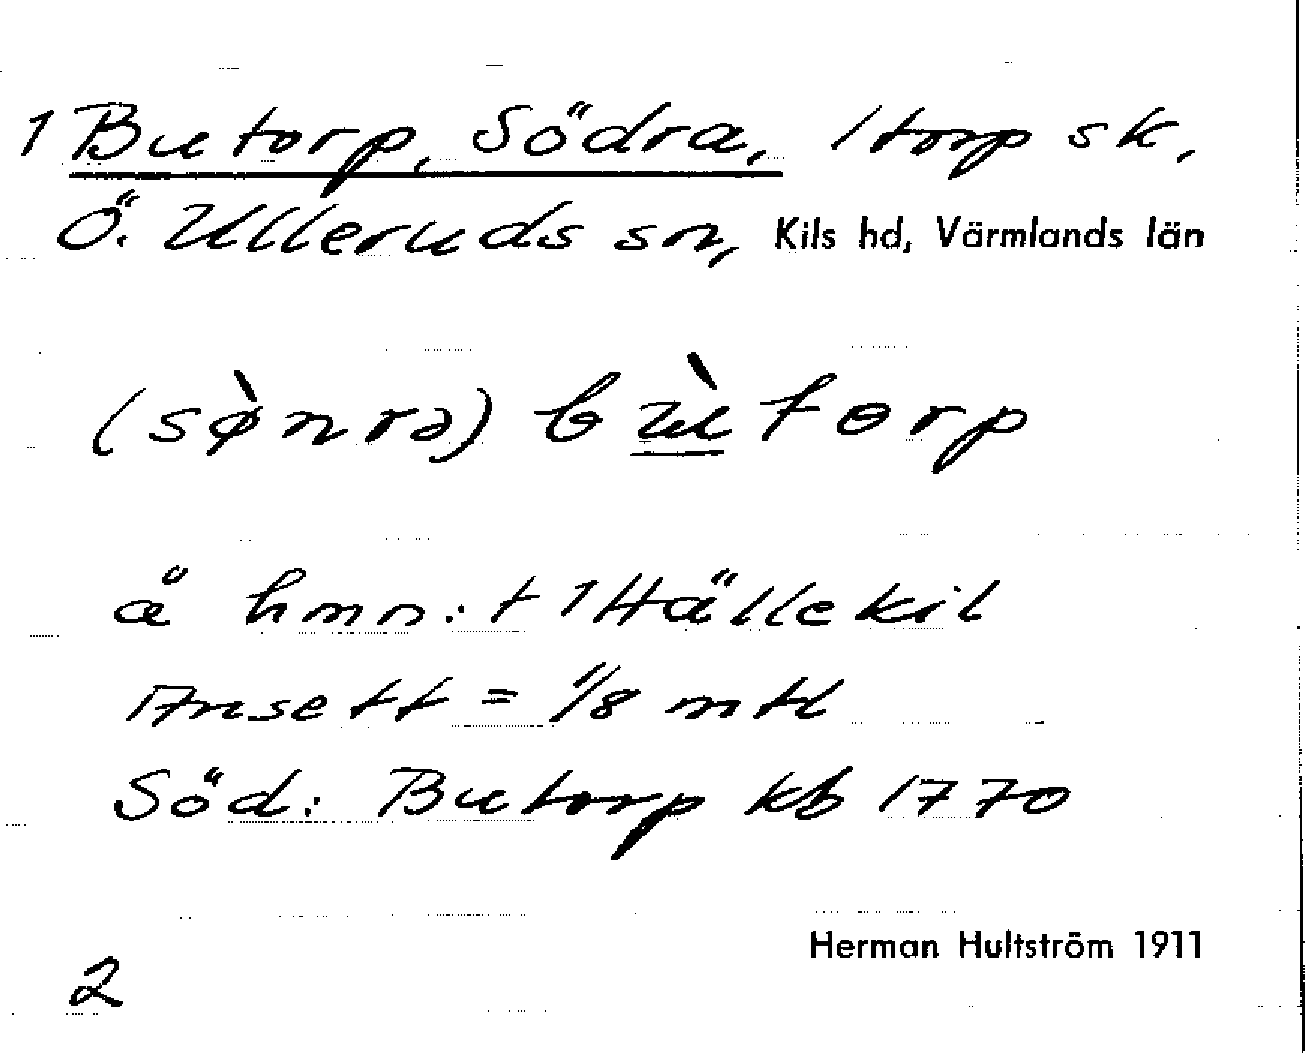 1 Butorp, Södra, 1 torp sk,
Ö. Ulleruds sn, Kils hd, Värmlands län
(sø̀nrə) bʉ̀torp
å hmn: t 1 Hällekil
Ansett = 1/8 mtl
Söd: Butorp kb 1770
Herman Hultström 1911
2